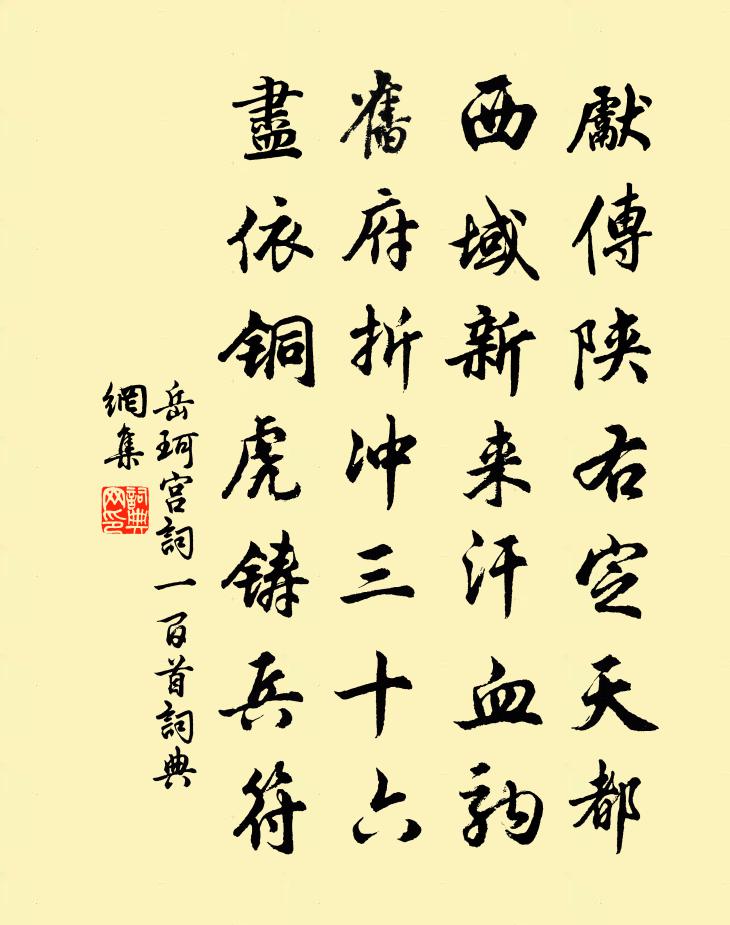 獻傳陝右定天都
西域新来汗血駒
舊府折冲三十六
盡依铜虎铸兵符
岳珂宫詞一百首詞典
網集
詞典网印